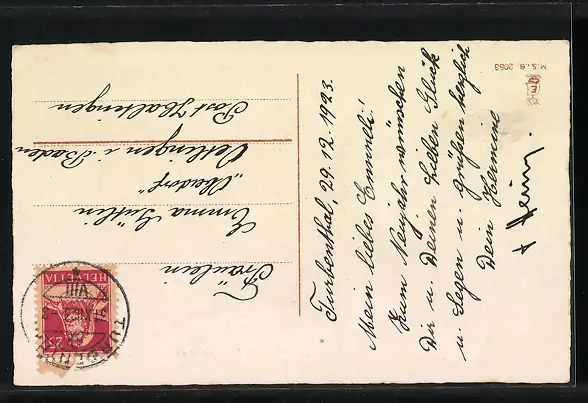 Turbenthal, 29.12.1923.
Mein liebes Emmeli!
Zum Neujahr wünschen
Dir u. Deinen Lieben Glück
u. Segen u. grüßen herzlich
Dein Hermine
+ Heiny.
Fräulein
Emma Gütlin
"Oberdorf"
Oetlingen i. Baden
Post Haltingen
HELVETIA
25
TURBENTHAL
VIII
M.S.i.B. 2053